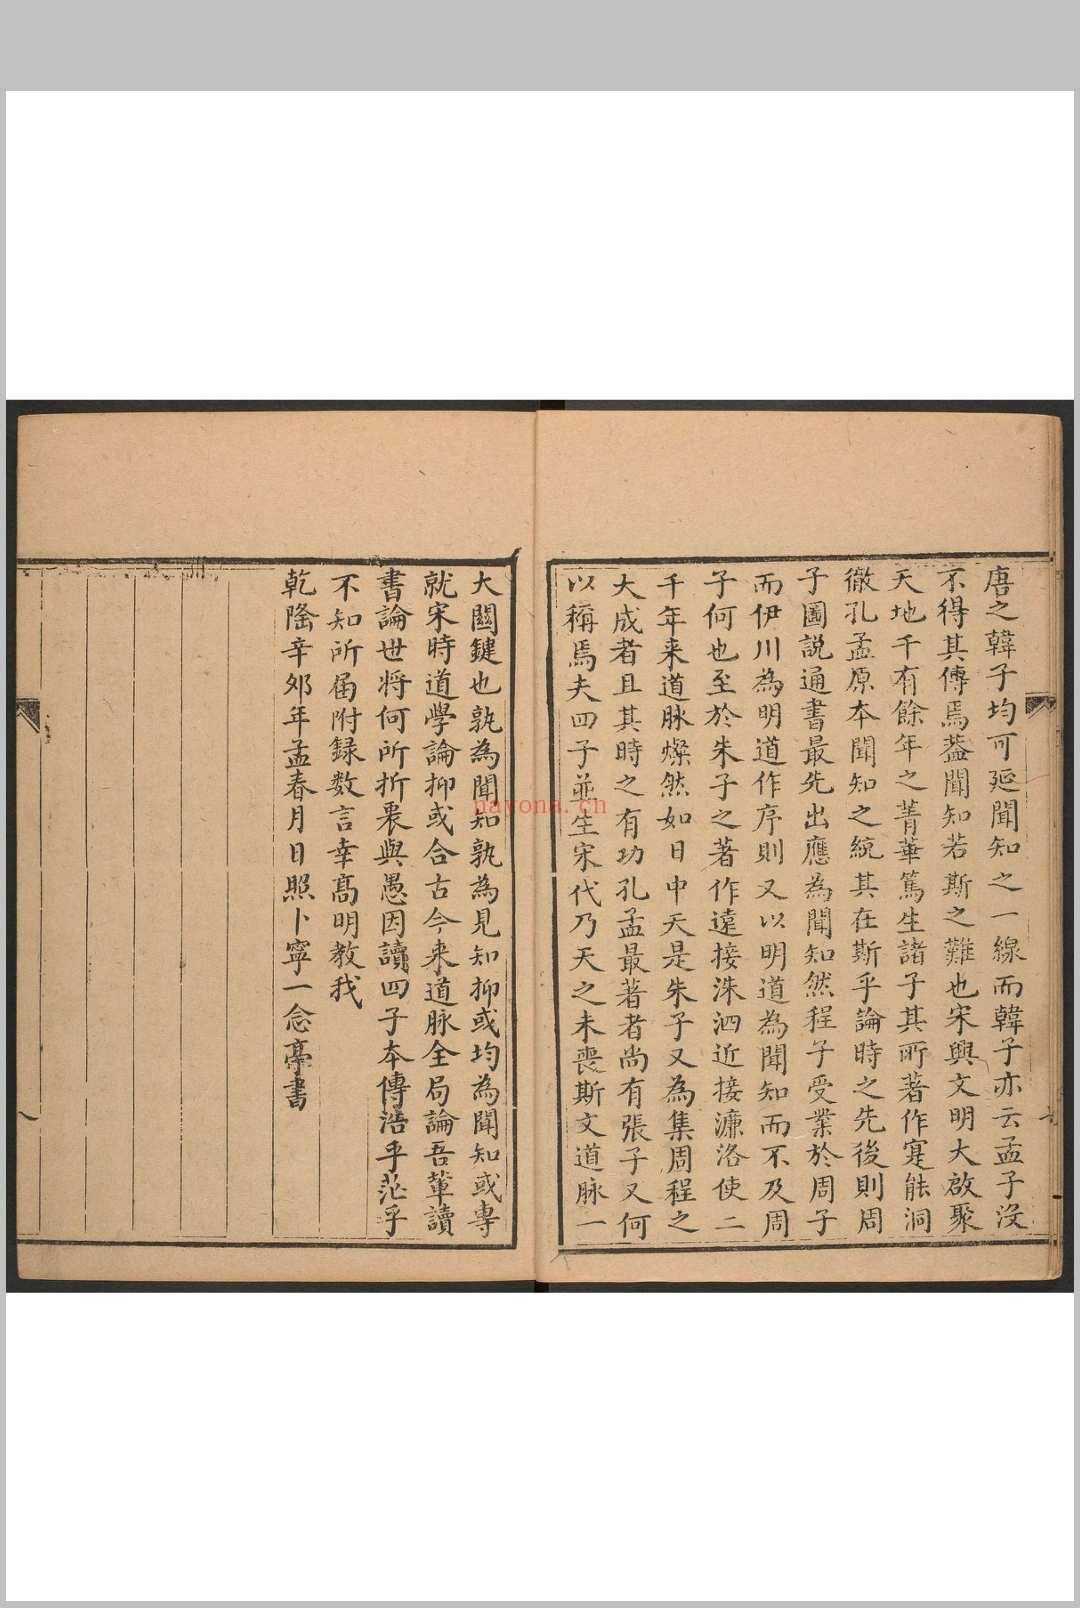 唐之韓子均可延聞知之一線而韓子亦云孟子沒
不得其傳焉葢聞知若斯之難也宋興文明大啟聚
天地千有餘年之菁華篤生諸子其所著作寔能洞
徹孔孟原本聞知之統其在斯乎論時之先後則周
子圖説通書最先出應為聞知然程子受業於周子
而伊川為明道作序則又以明道為聞知而不及周
子何也至於朱子之著作遠接洙泗近接濂洛使二
千年来道脉燦然如日中天是朱子又為集周程之
大成者且其時之有功孔孟最著者尚有張子又何
以稱焉夫四子並生宋代乃天之未喪斯文道脉一
大關鍵也孰為聞知孰為見知抑或均為聞知或專
就宋時道學論抑或合古今来道脉全局論吾輩讀
書論世将何所折衷與愚因讀四子本傳浩乎茫乎
不知所届附録数言幸髙明教我
乾隆辛夘年孟春月日照卜寧一念亭書
nayona.cn